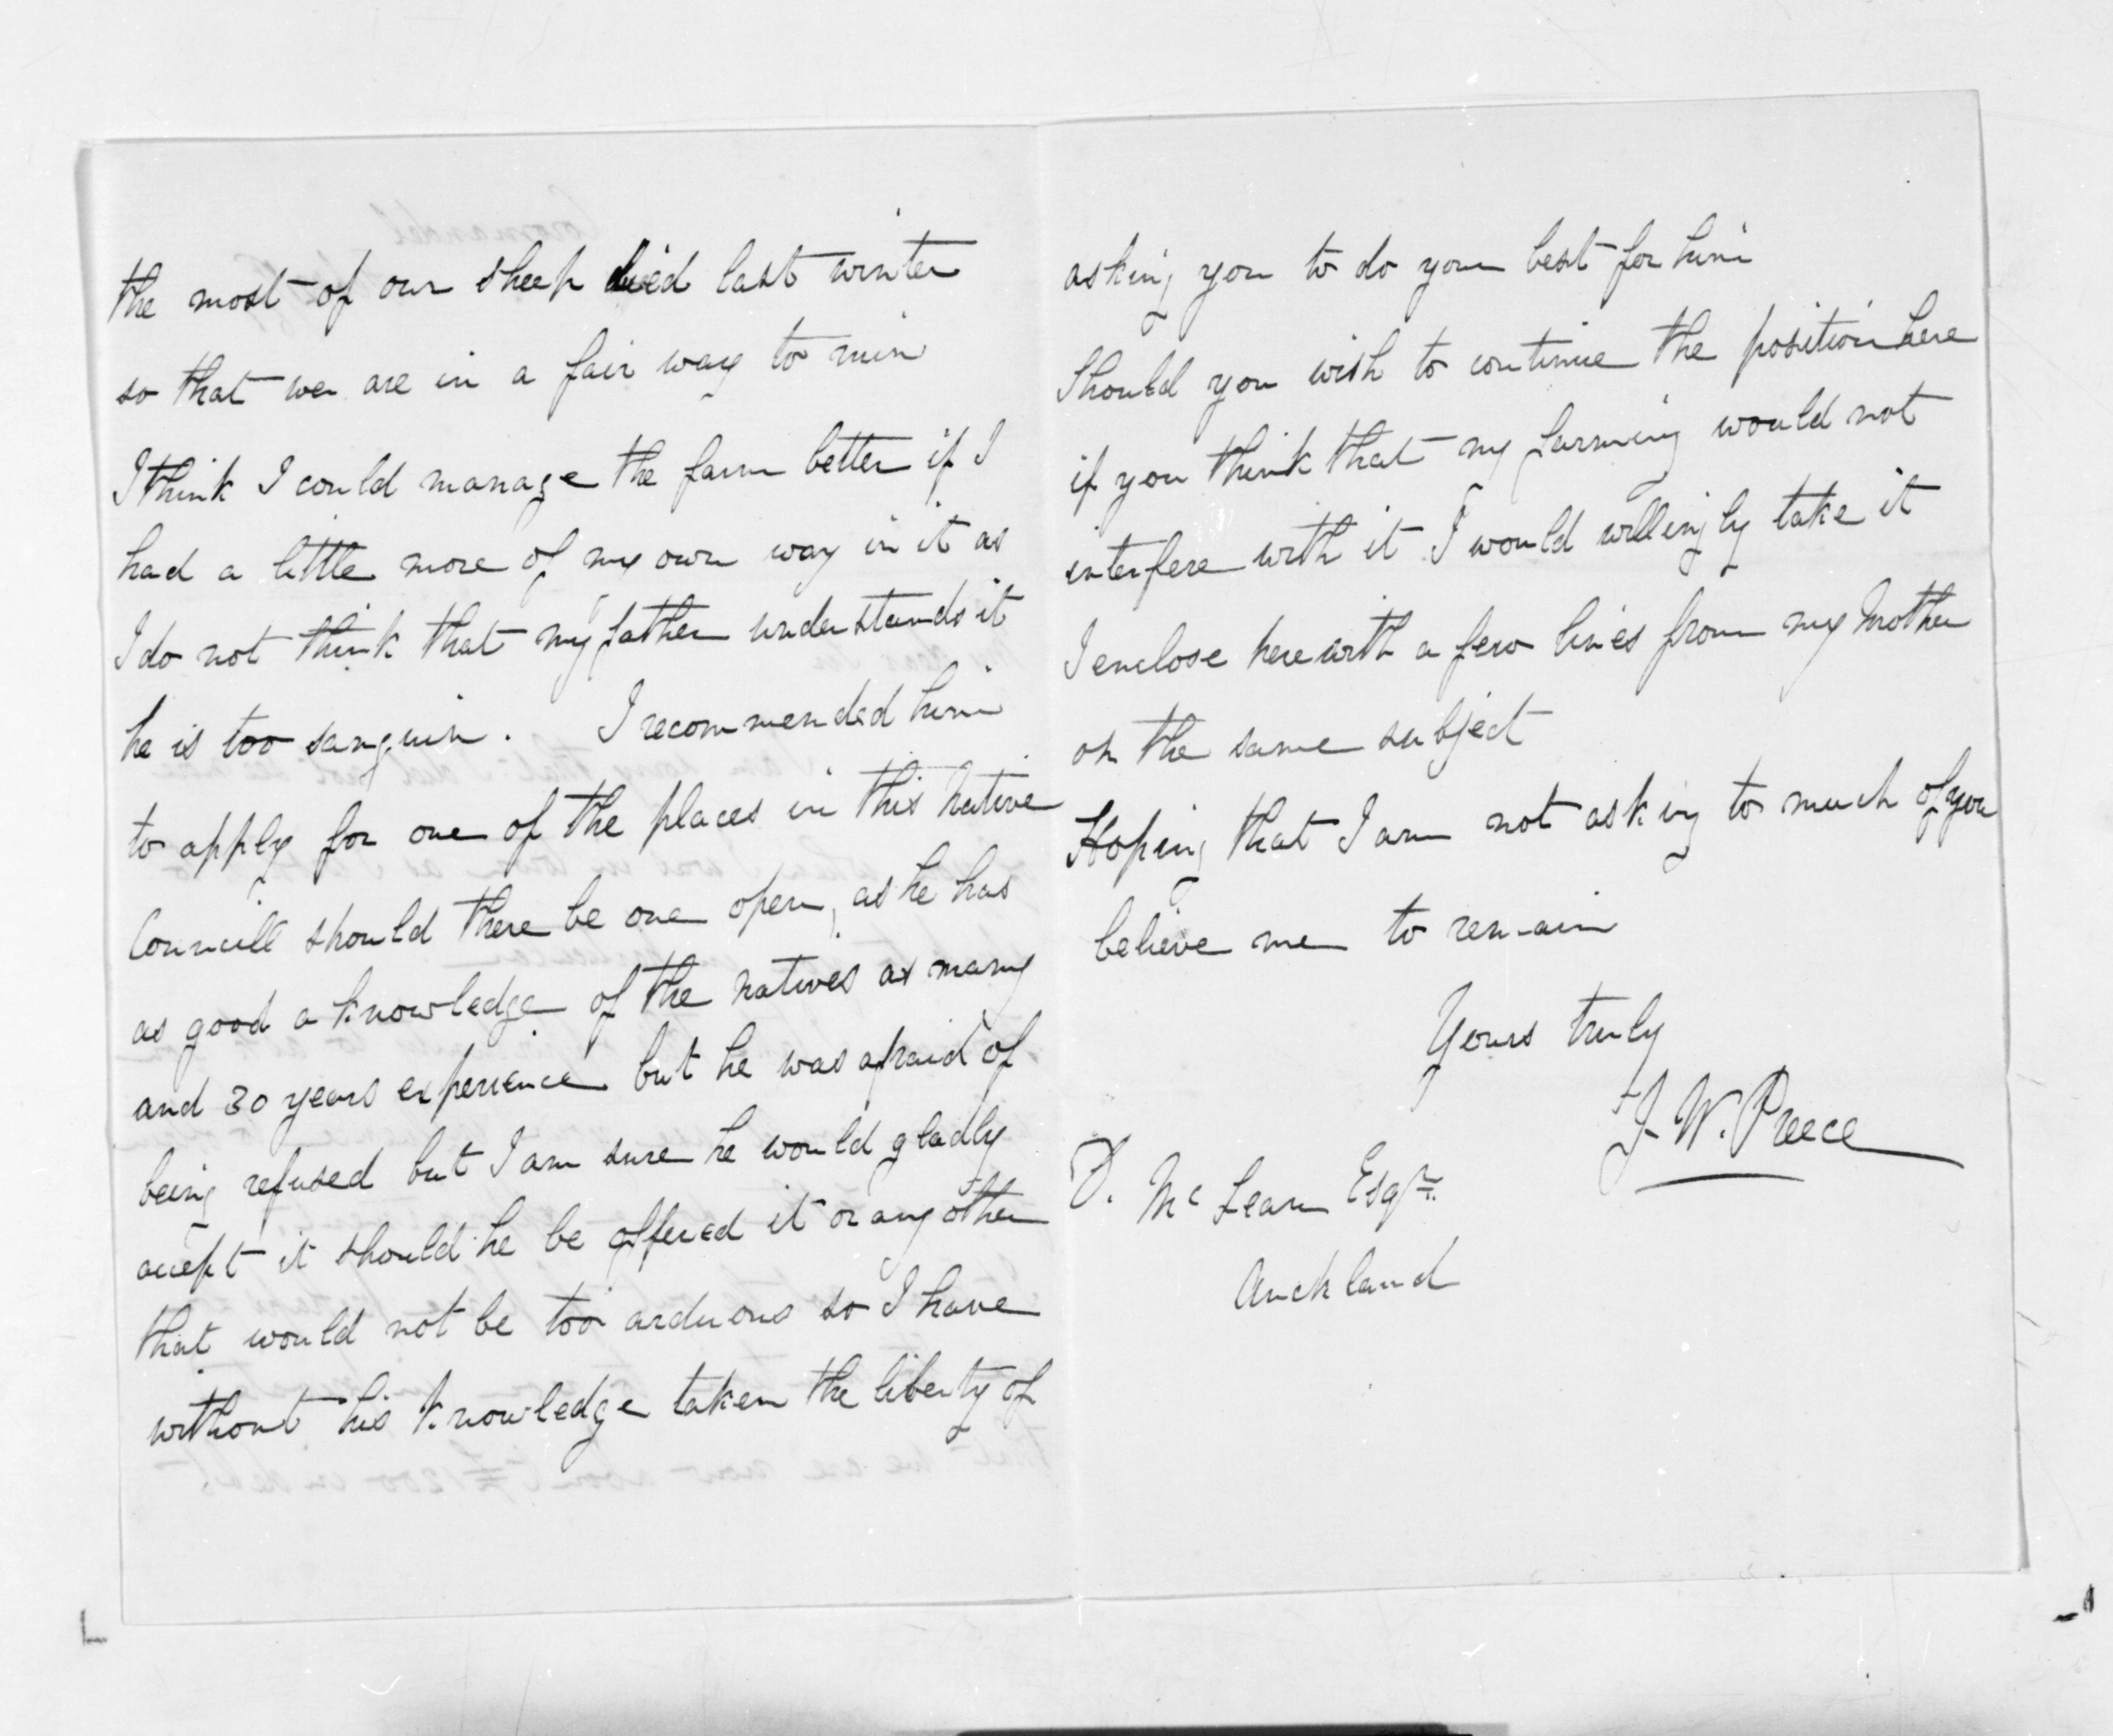 the most of our sheep died last winter
so that we are in a fair way to ruin
I think I could manage the farm better if I
had a little more of my own way in it as
I do not think that my father understands it
he is too sanguin. I recommended him
to apply for one of the places in this Native
Councill should there be one open, as he has
as good a knowledge of the natives as many
and 30 years experience but he was afraid of
being refused but I am sure he would gladly
accept it should he be offered it or any other
that would not be too arduous so I have
without his knowledge taken the liberty of
asking you to do your best for him
Should you wish to continue the position here
if you think that my farming would not
interfere with it I would willingly take it
I enclose herewith a few lines from my Mother
on the same subject
Hoping that I am not asking to much of you
believe me to remain
Yours truly
J. W. Preece
D. McLean Esqr.
Auckland